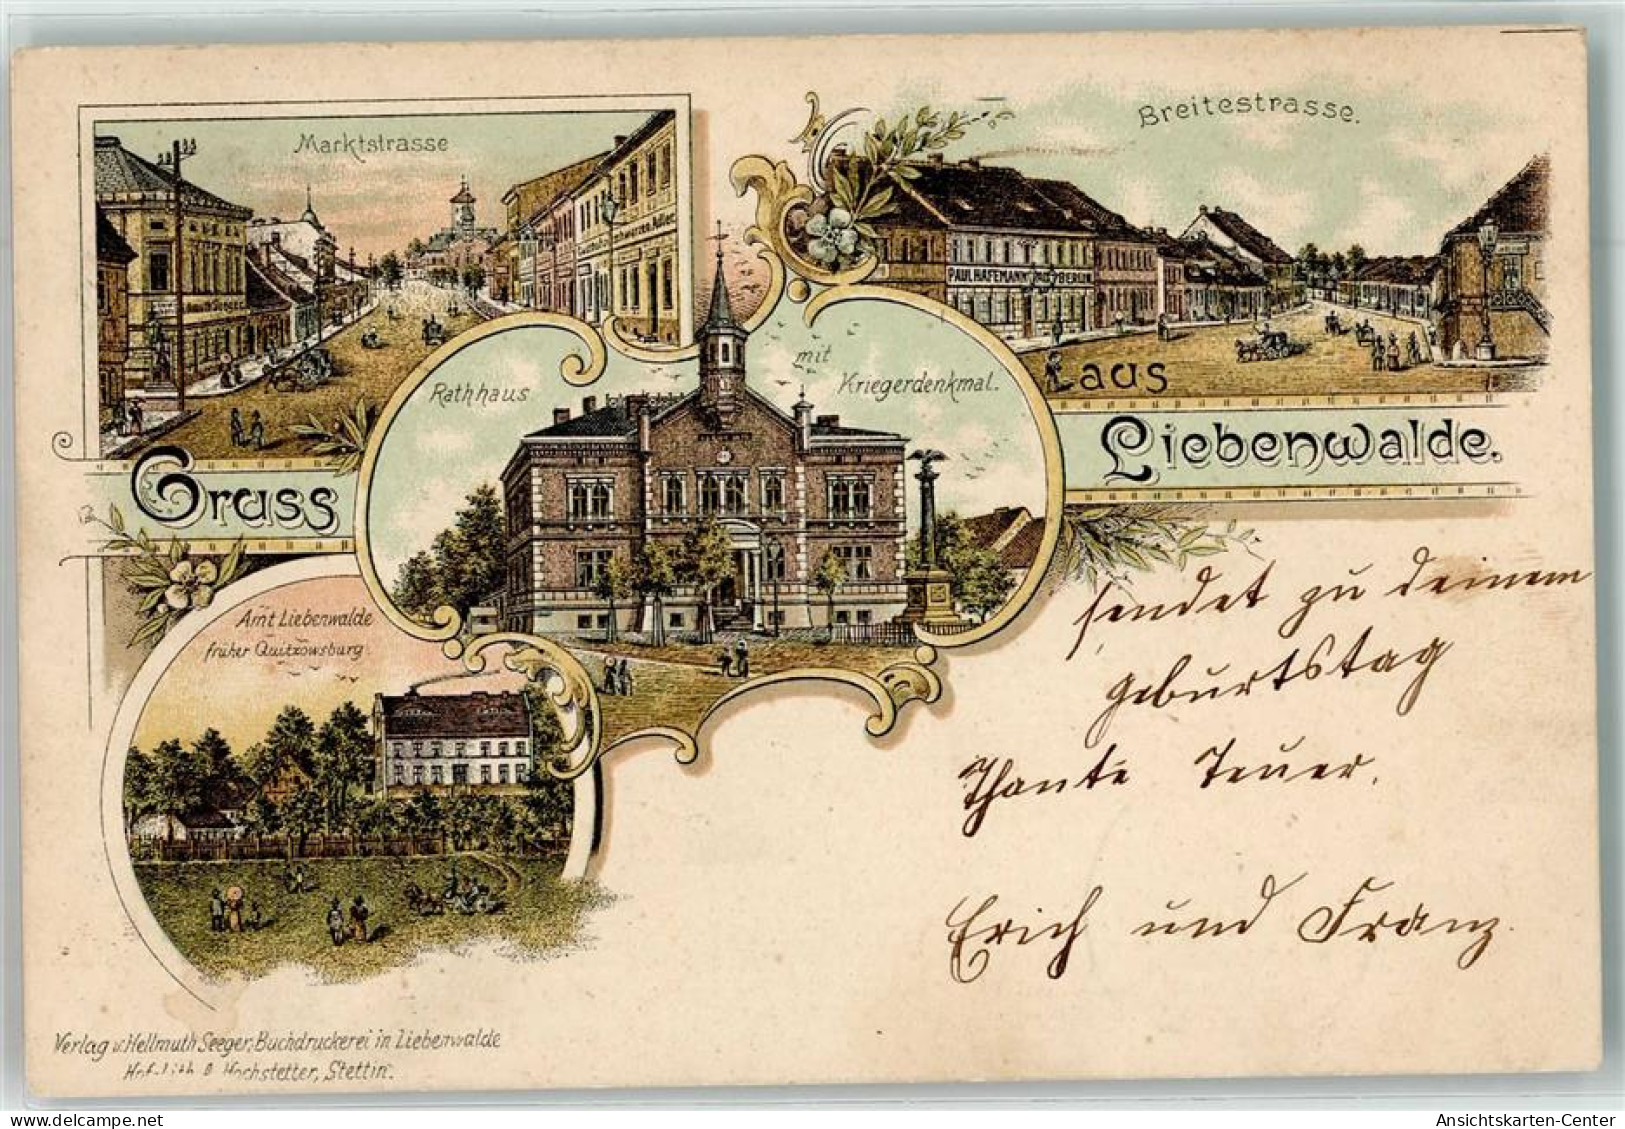 Marktstrasse
Breitestrasse.
PAUL HAFEMANN
BERLIN
Rathhaus
mit
Kriegerdenkmal.
Gruss
aus
Liebenwalde.
Amt Liebenwalde
früher Quitzowsburg.
sendet zu deinem
geburtstag
Thante Teuer.
Erich und Franz.
Verlag v. Hellmuth Seeger, Buchdruckerei in Liebenwalde
Hof-Lith. O. Hochstetter, Stettin.
Ansichtskarten-Center